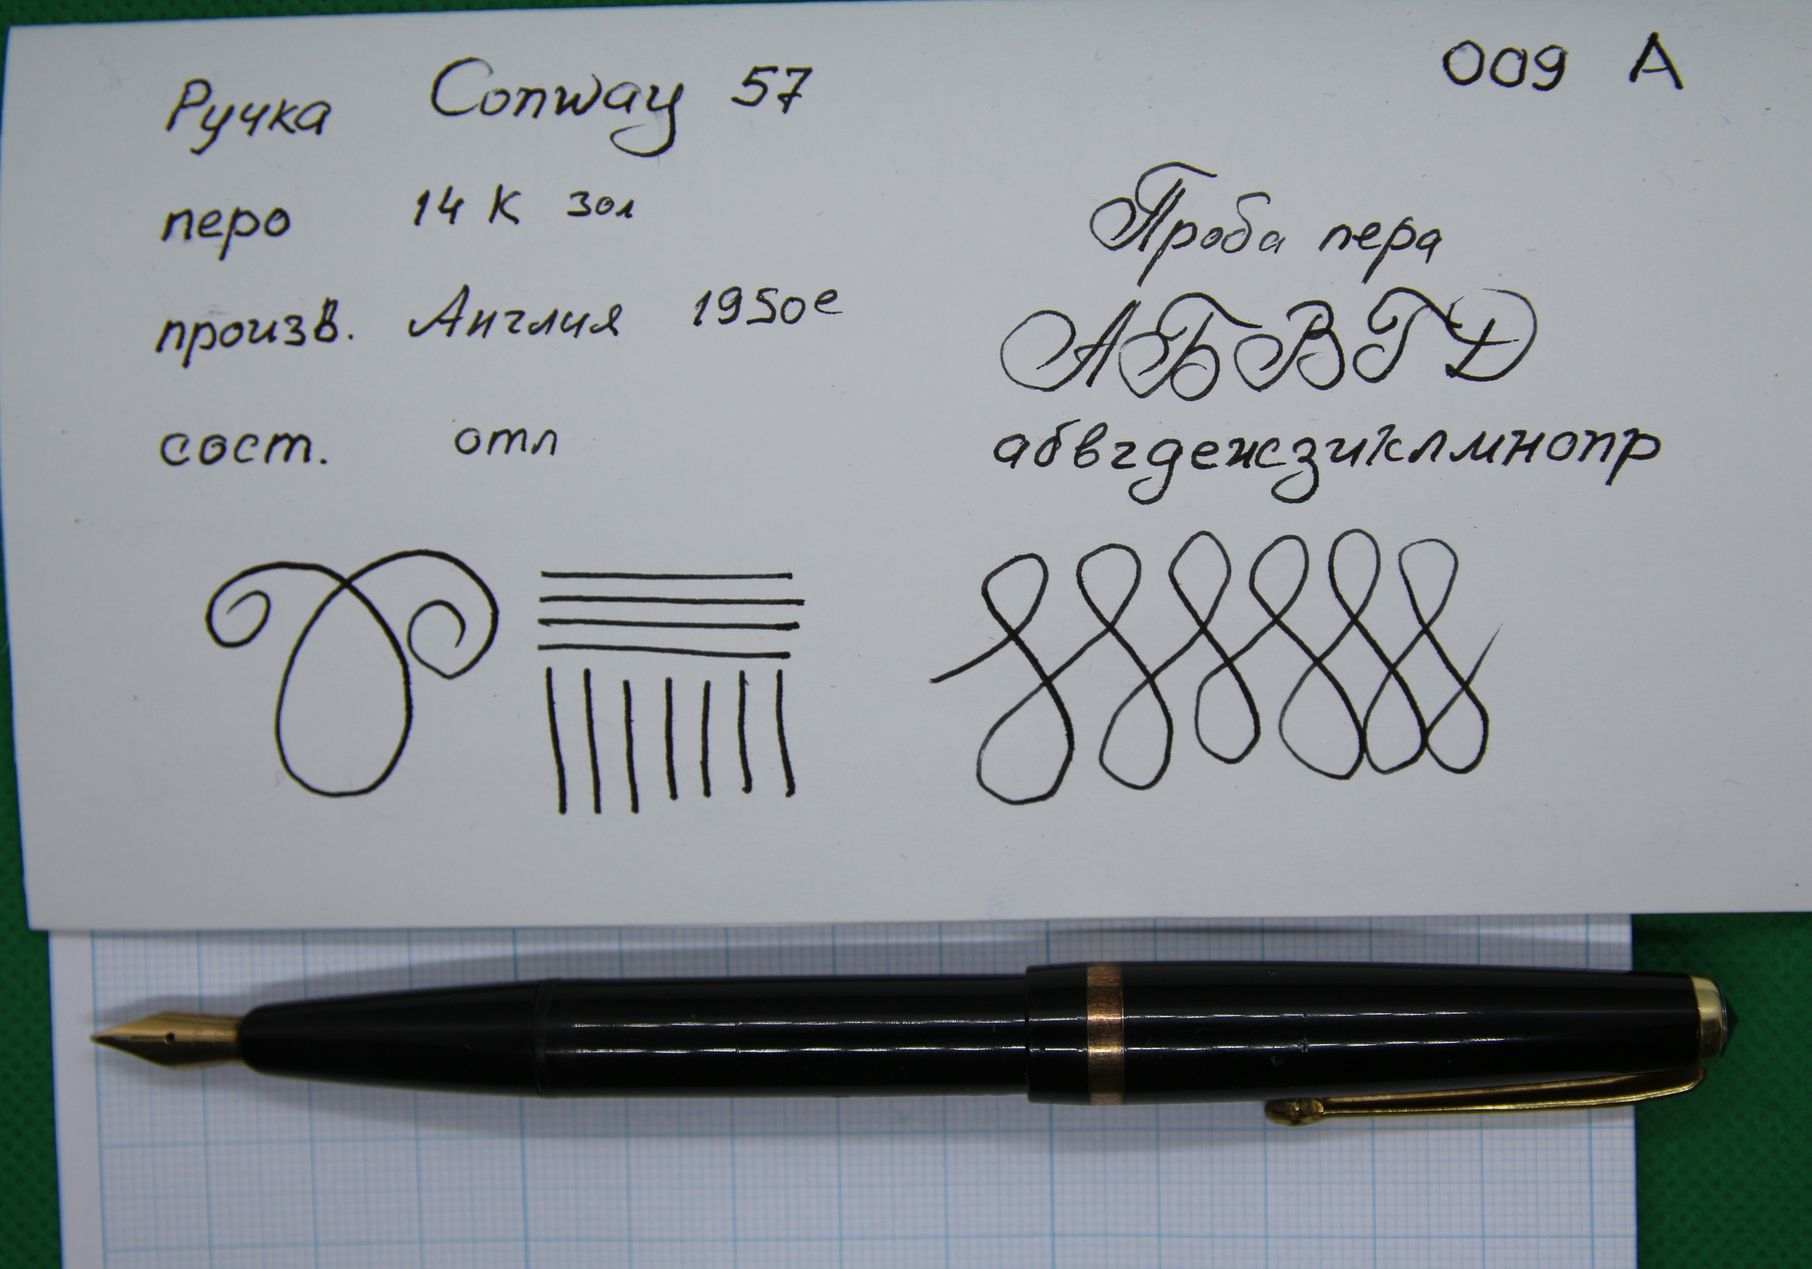 009 А
Ручка Conway 57
перо 14 К зол
произв. Англия 1950е
сост. отл
Проба пера
АБВГД
абвгдежзиклмнопр